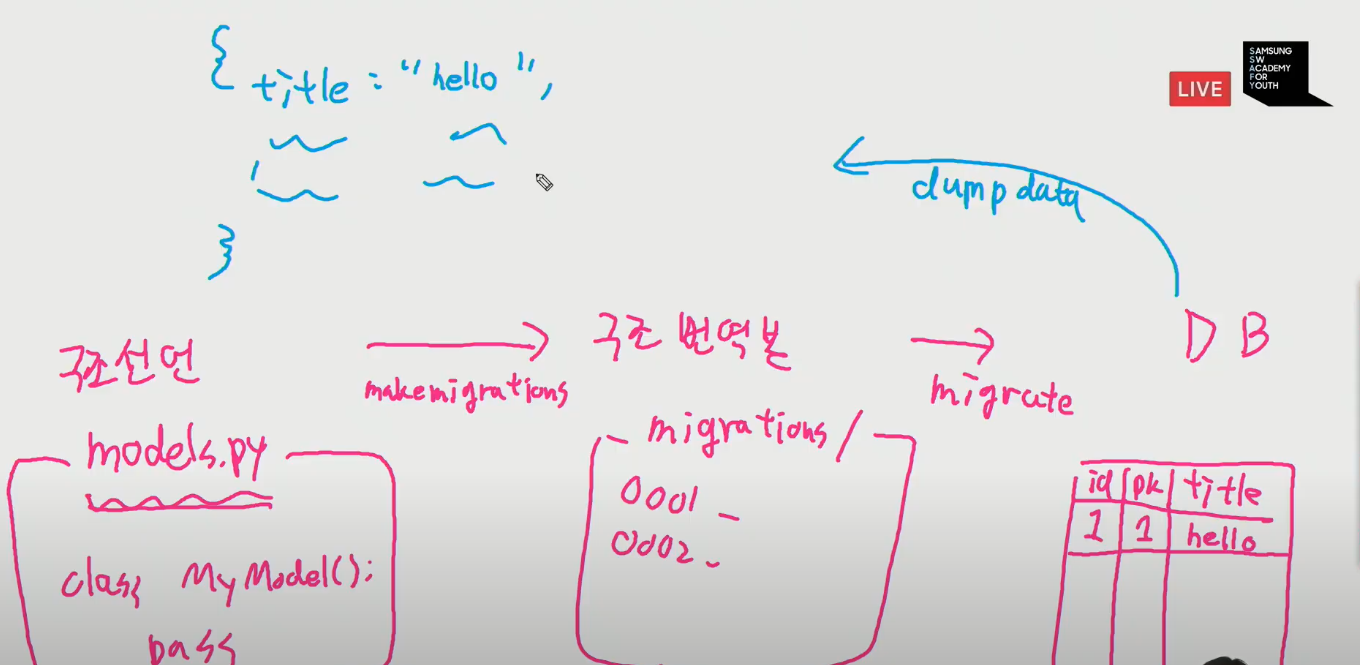 {
title : "hello",
}
SAMSUNG
SW
ACADEMY
FOR
YOUTH
LIVE
dumpdata
구조선언
makemigrations
구조 번역본
migrate
DB
models.py
class MyModel():
pass
migrations/
0001_
0002_
id pk title
1 1 hello